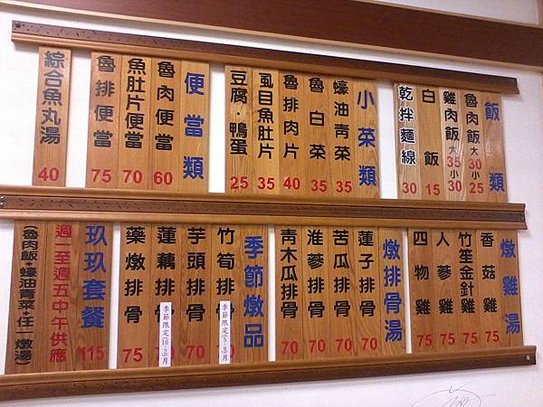 飯類
魯肉飯 大30 小25
雞肉飯 大35 小30
白飯 15
乾拌麵線 30
小菜類
蠔油青菜 35
魯白菜 35
魯排肉片 40
虱目魚肚片 35
豆腐 鴨蛋 25
便當類
魯肉便當 60
魚肚片便當 70
魯排便當 75
綜合魚丸湯 40
燉雞湯
香菇雞 75
竹笙金針雞 75
人蔘雞 75
四物雞 75
燉排骨湯
蓮子排骨 70
苦瓜排骨 70
淮蔘排骨 70
青木瓜排骨 70
季節燉品
竹筍排骨
季節限定
芋頭排骨 70
蓮藕排骨
季節限定
藥燉排骨 75
玖玖套餐 115
週一至週五中午供應
(魯肉飯+蠔油青菜+任一燉湯)